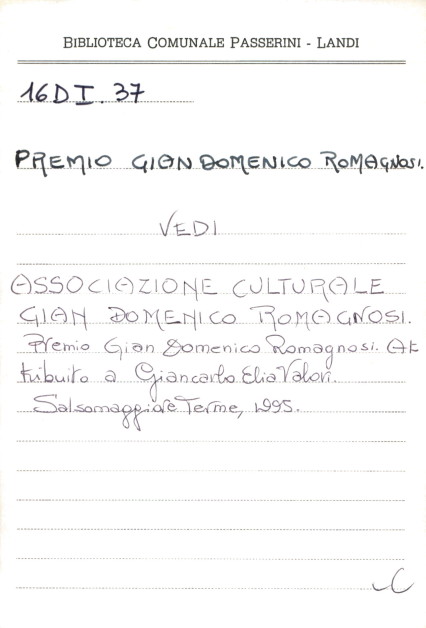 BIBLIOTECA COMUNALE PASSERINI - LANDI
16DI. 37
PREMIO GIAN DOMENICO ROMAGNOSI.
VEDI
ASSOCIAZIONE CULTURALE
GIAN DOMENICO ROMAGNOSI.
Premio Gian Domenico Romagnosi. At
tribuito a Giancarlo Elia Valori.
Salsomaggiore Terme, 1995.